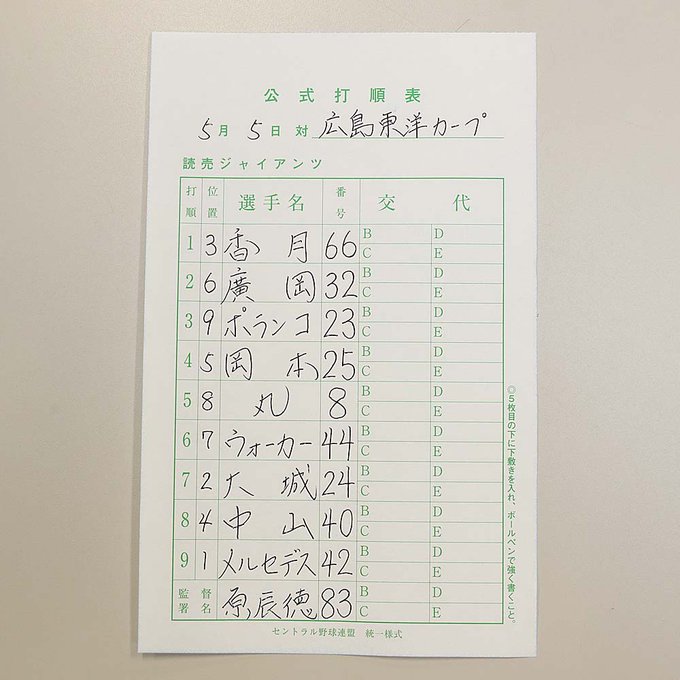 公式打順表
5月5日 対 広島東洋カープ
読売ジャイアンツ
打順 位置 選手名 番号 交代
1 3 香月 66 B D C E
2 6 廣岡 32 B D C E
3 9 ポランコ 23 B D C E
4 5 岡本 25 B D C E
5 8 丸 8 B D C E
6 7 ウォーカー 44 B D C E
7 2 大城 24 B D C E
8 4 中山 40 B D C E
9 1 メルセデス 42 B D C E
監督署名 原辰徳 83 B D C E
セントラル野球連盟 統一様式
◎5枚目の下に下敷きを入れ、ボールペンで強く書くこと。